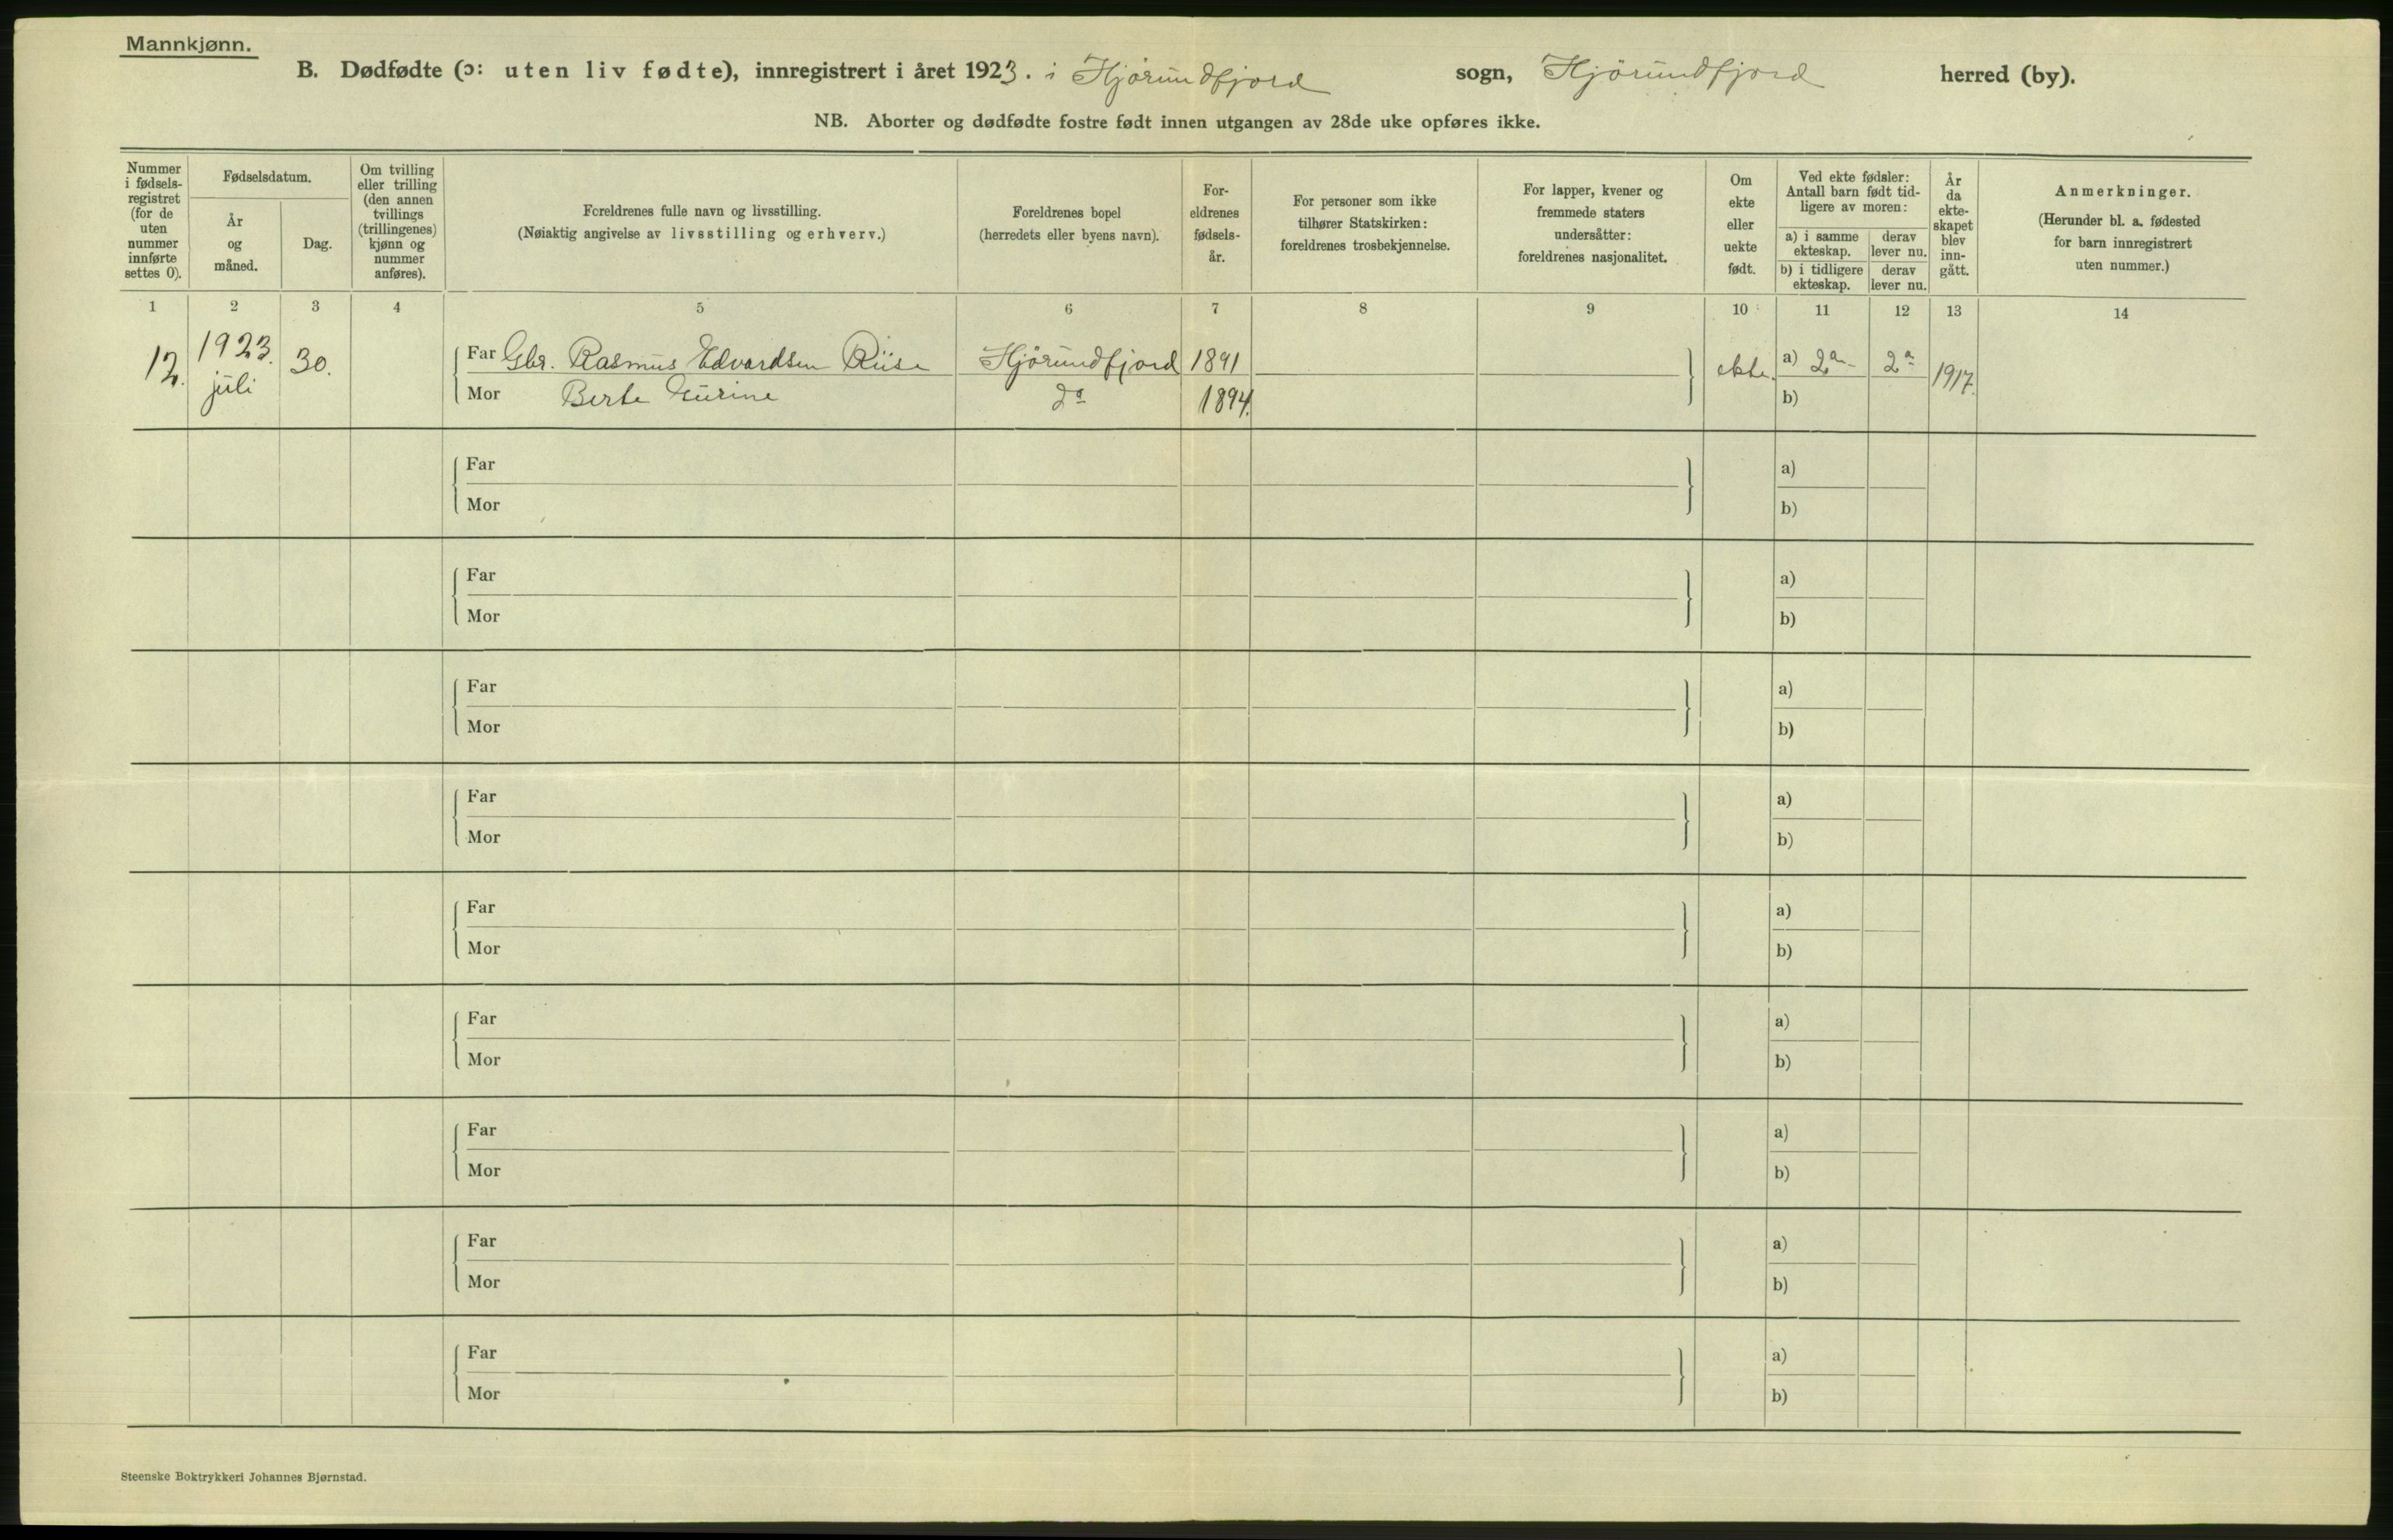 Mannkjønn.
B. Dødfødte (ɔ: uten liv fødte), innregistrert i året 1923. i Hjörundfjord sogn, Hjörundfjord herred (by).
NB. Aborter og dødfødte fostre født innen utgangen av 28de uke opføres ikke.
Nummer i fødsels-registret (for de uten nummer innførte settes 0).
Fødselsdatum.
År og måned.
Dag.
Om tvilling eller trilling (den annen tvillings (trillingenes) kjønn og nummer anføres).
Foreldrenes fulle navn og livsstilling.
(Nøiaktig angivelse av livsstilling og erhverv.)
Foreldrenes bopel
(herredets eller byens navn).
For-eldrenes fødsels-år.
For personer som ikke tilhører Statskirken: foreldrenes trosbekjennelse.
For lapper, kvener og fremmede staters undersåtter: foreldrenes nasjonalitet.
Om ekte eller uekte født.
Ved ekte fødsler: Antall barn født tid-ligere av moren:
a) i samme ekteskap.
derav lever nu.
b) i tidligere ekteskap.
derav lever nu.
År da ekte-skapet blev inn-gått.
Anmerkninger.
(Herunder bl. a. fødested for barn innregistrert uten nummer.)
1 2 3 4 5 6 7 8 9 10 11 12 13 14
12. 1923. juli 30.
Far Gbr. Rasmus Edvardsen Riise Hjörundfjord 1891 ekte. a) 2 2 1917.
Mor Berte do 1894. b)
Far a)
Mor b)
Far a)
Mor b)
Far a)
Mor b)
Far a)
Mor b)
Far a)
Mor b)
Far a)
Mor b)
Far a)
Mor b)
Far a)
Mor b)
Far a)
Mor b)
Steenske Boktrykkeri Johannes Bjørnstad.